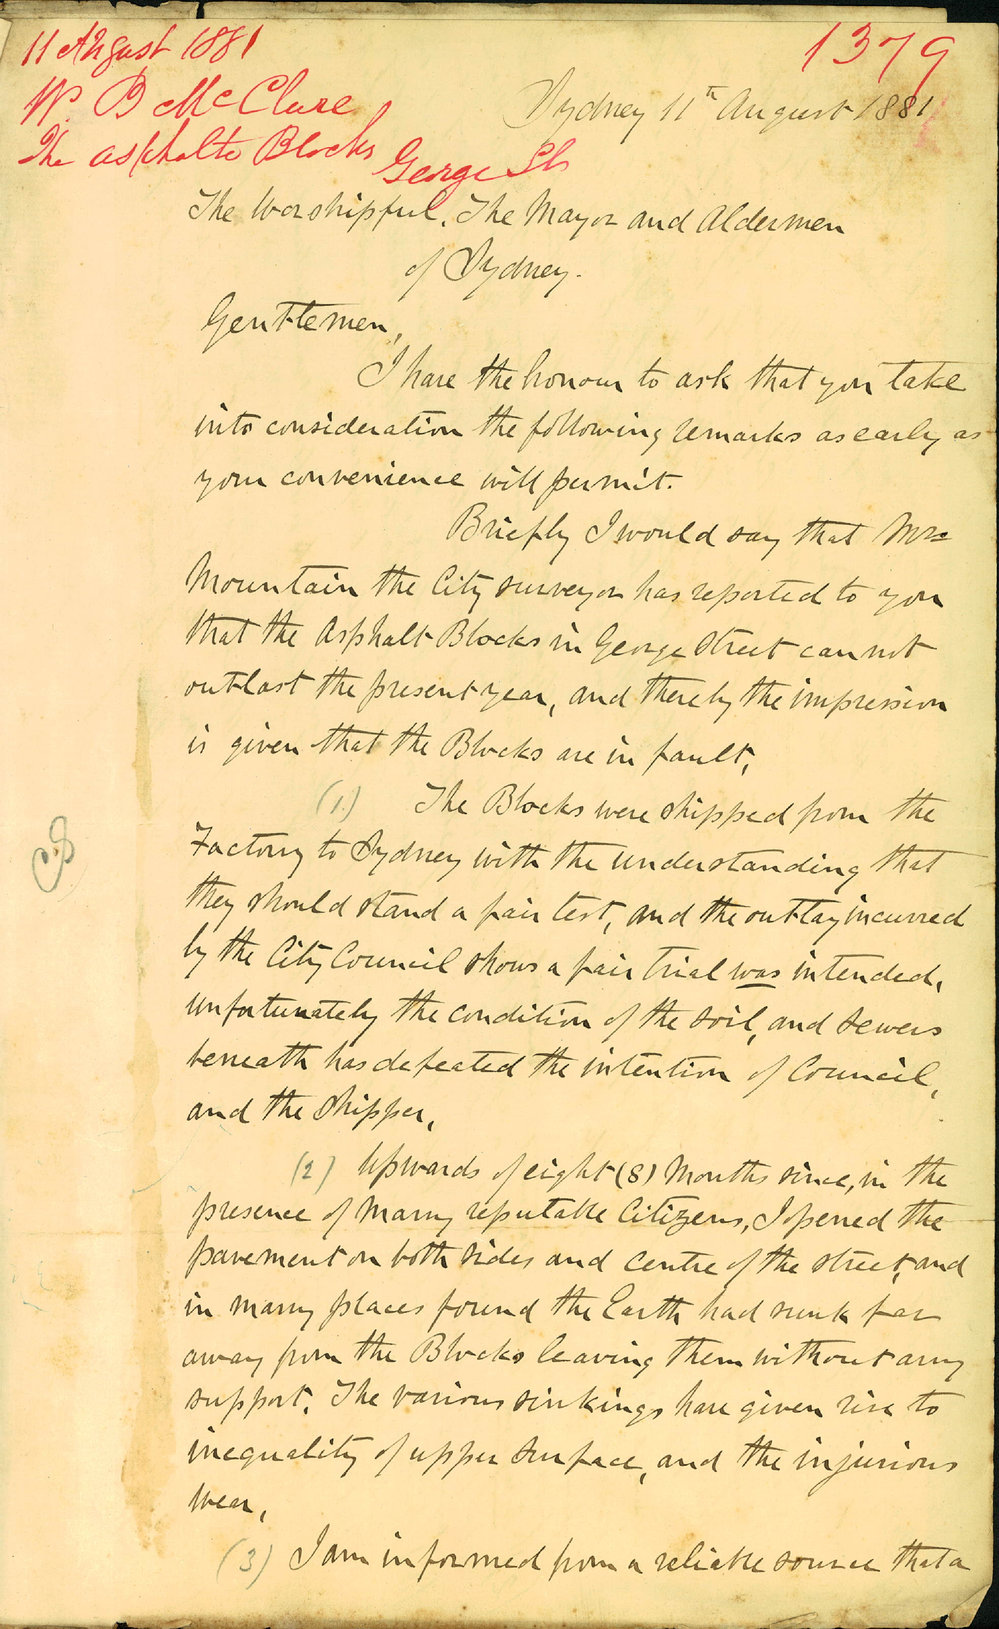 11 August 1881
1379
W. B McClure
The asphalte Blocks
George St
Sydney 11th August 1881
The Worshipful, The Mayor and Aldermen
of Sydney.
Gentlemen,
I have the honour to ask that you take
into consideration the following remarks as early as
your convenience will permit.
Briefly I would say that Mr
Mountain the City surveyor has reported to you
that the Asphalt Blocks in George Street can not
outlast the present year, and thereby the impression
is given that the Blocks are in fault,
(1) The Blocks were shipped from the
Factory to Sydney with the understanding that
they should stand a fair test, and the outlay incurred
by the City Council shows a fair trial was intended,
unfortunately the condition of the soil, and sewers
beneath has defeated the intention of Council,
and the Shipper,
(2) Upwards of eight (8) Months since, in the
presence of many reputable Citizens, I opened the
pavement on both sides and centre of the street, and
in many places found the Earth had sunk far
away from the Blocks leaving them without any
support. The various sinkings have given rise to
inequality of upper surface, and the injurious
wear,
(3) I am informed from a reliable source that a